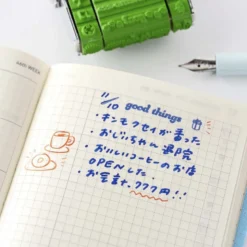 11/10 good things
・キンモクセイが香った
・おじいちゃん退院
・おいしいコーヒーのお店
OPENした
・お会計、777円!!